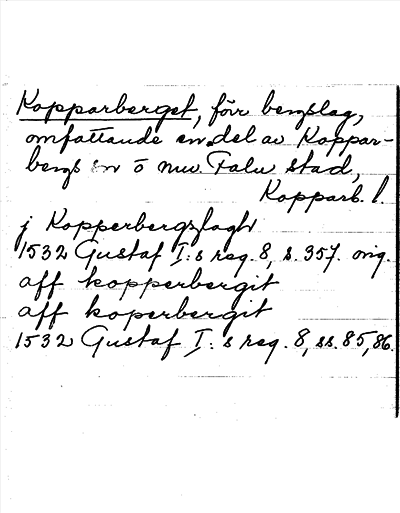 Kopparberget, förr bergslag,
omfattande en del av Koppar-
bergs sn o nuv. Falu stad,
Kopparb. l.
j Kopperbergzlagh
1532 Gustaf I:s reg. 8, s. 357. orig.
aff kopperbergit
aff koperbergit
1532 Gustaf I:s reg. 8, ss. 85, 86.